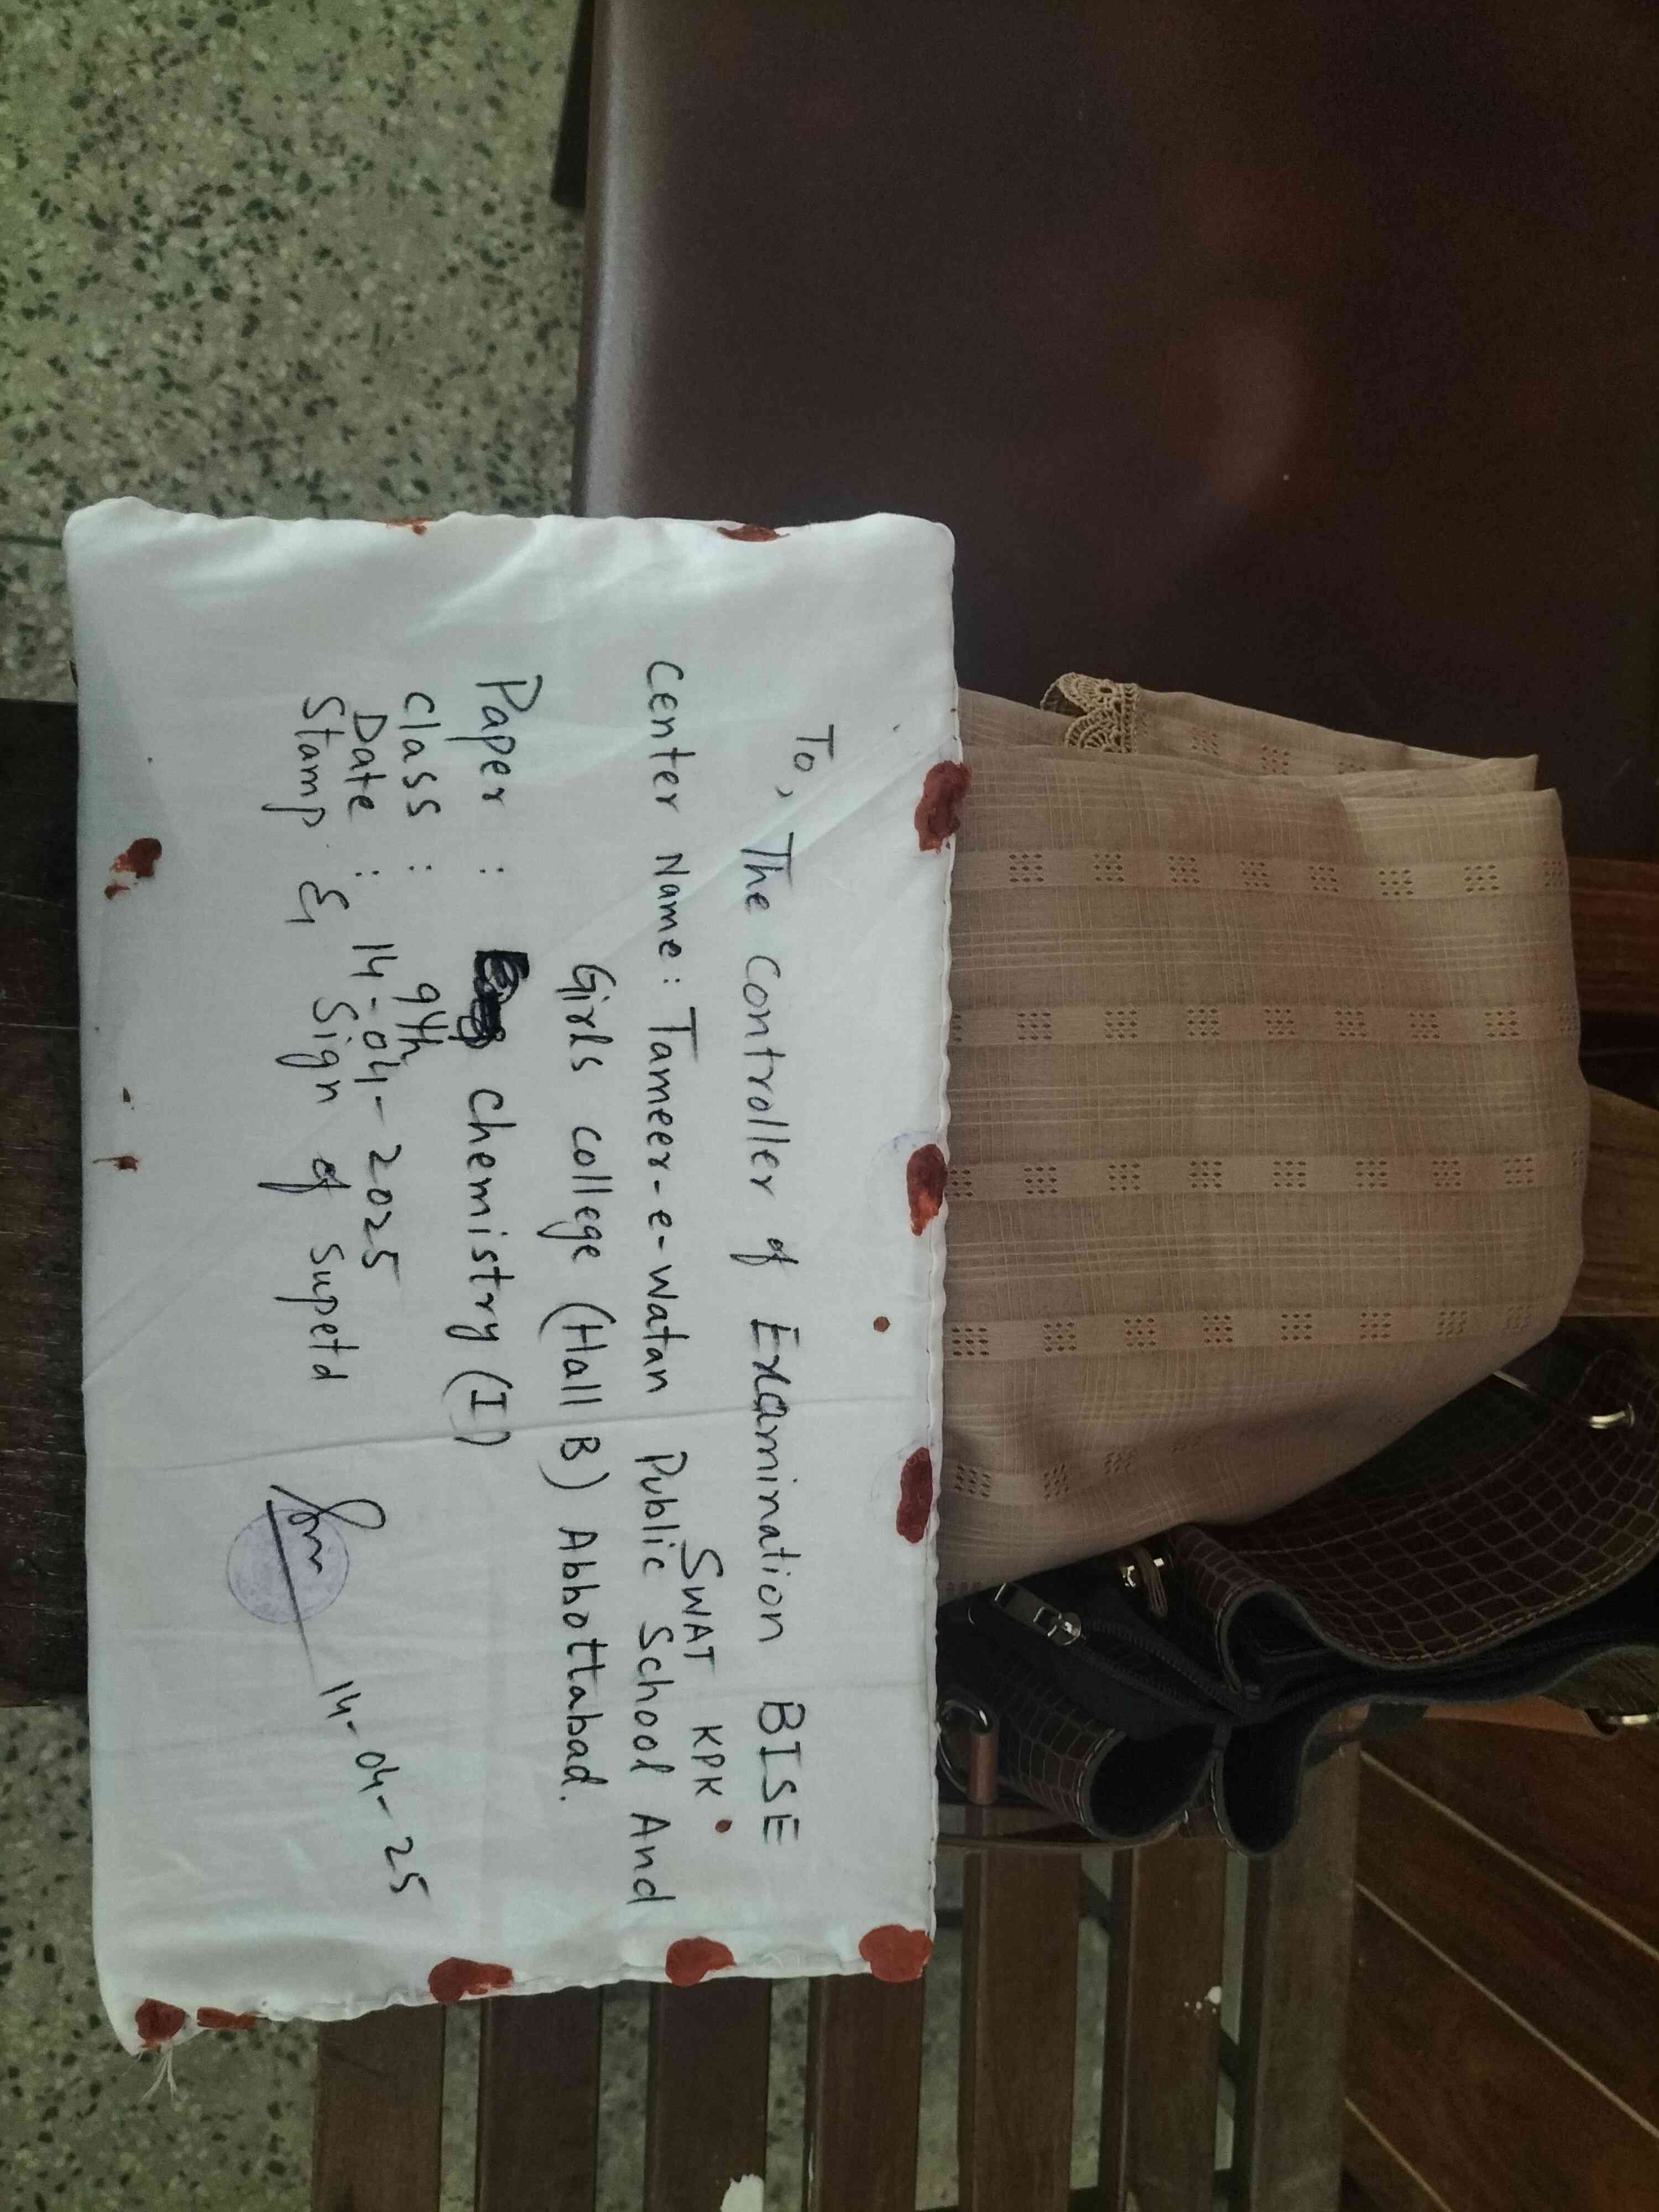 To, The Controller of Examination BISE
SWAT KPK
Center Name: Tameer-e-watan Public School And
Girls college (Hall B) Abbottabad.
Paper : chemistry (I)
Class : 9th
Date : 14-04-2025
Stamp & Sign of Supetd
14-04-25